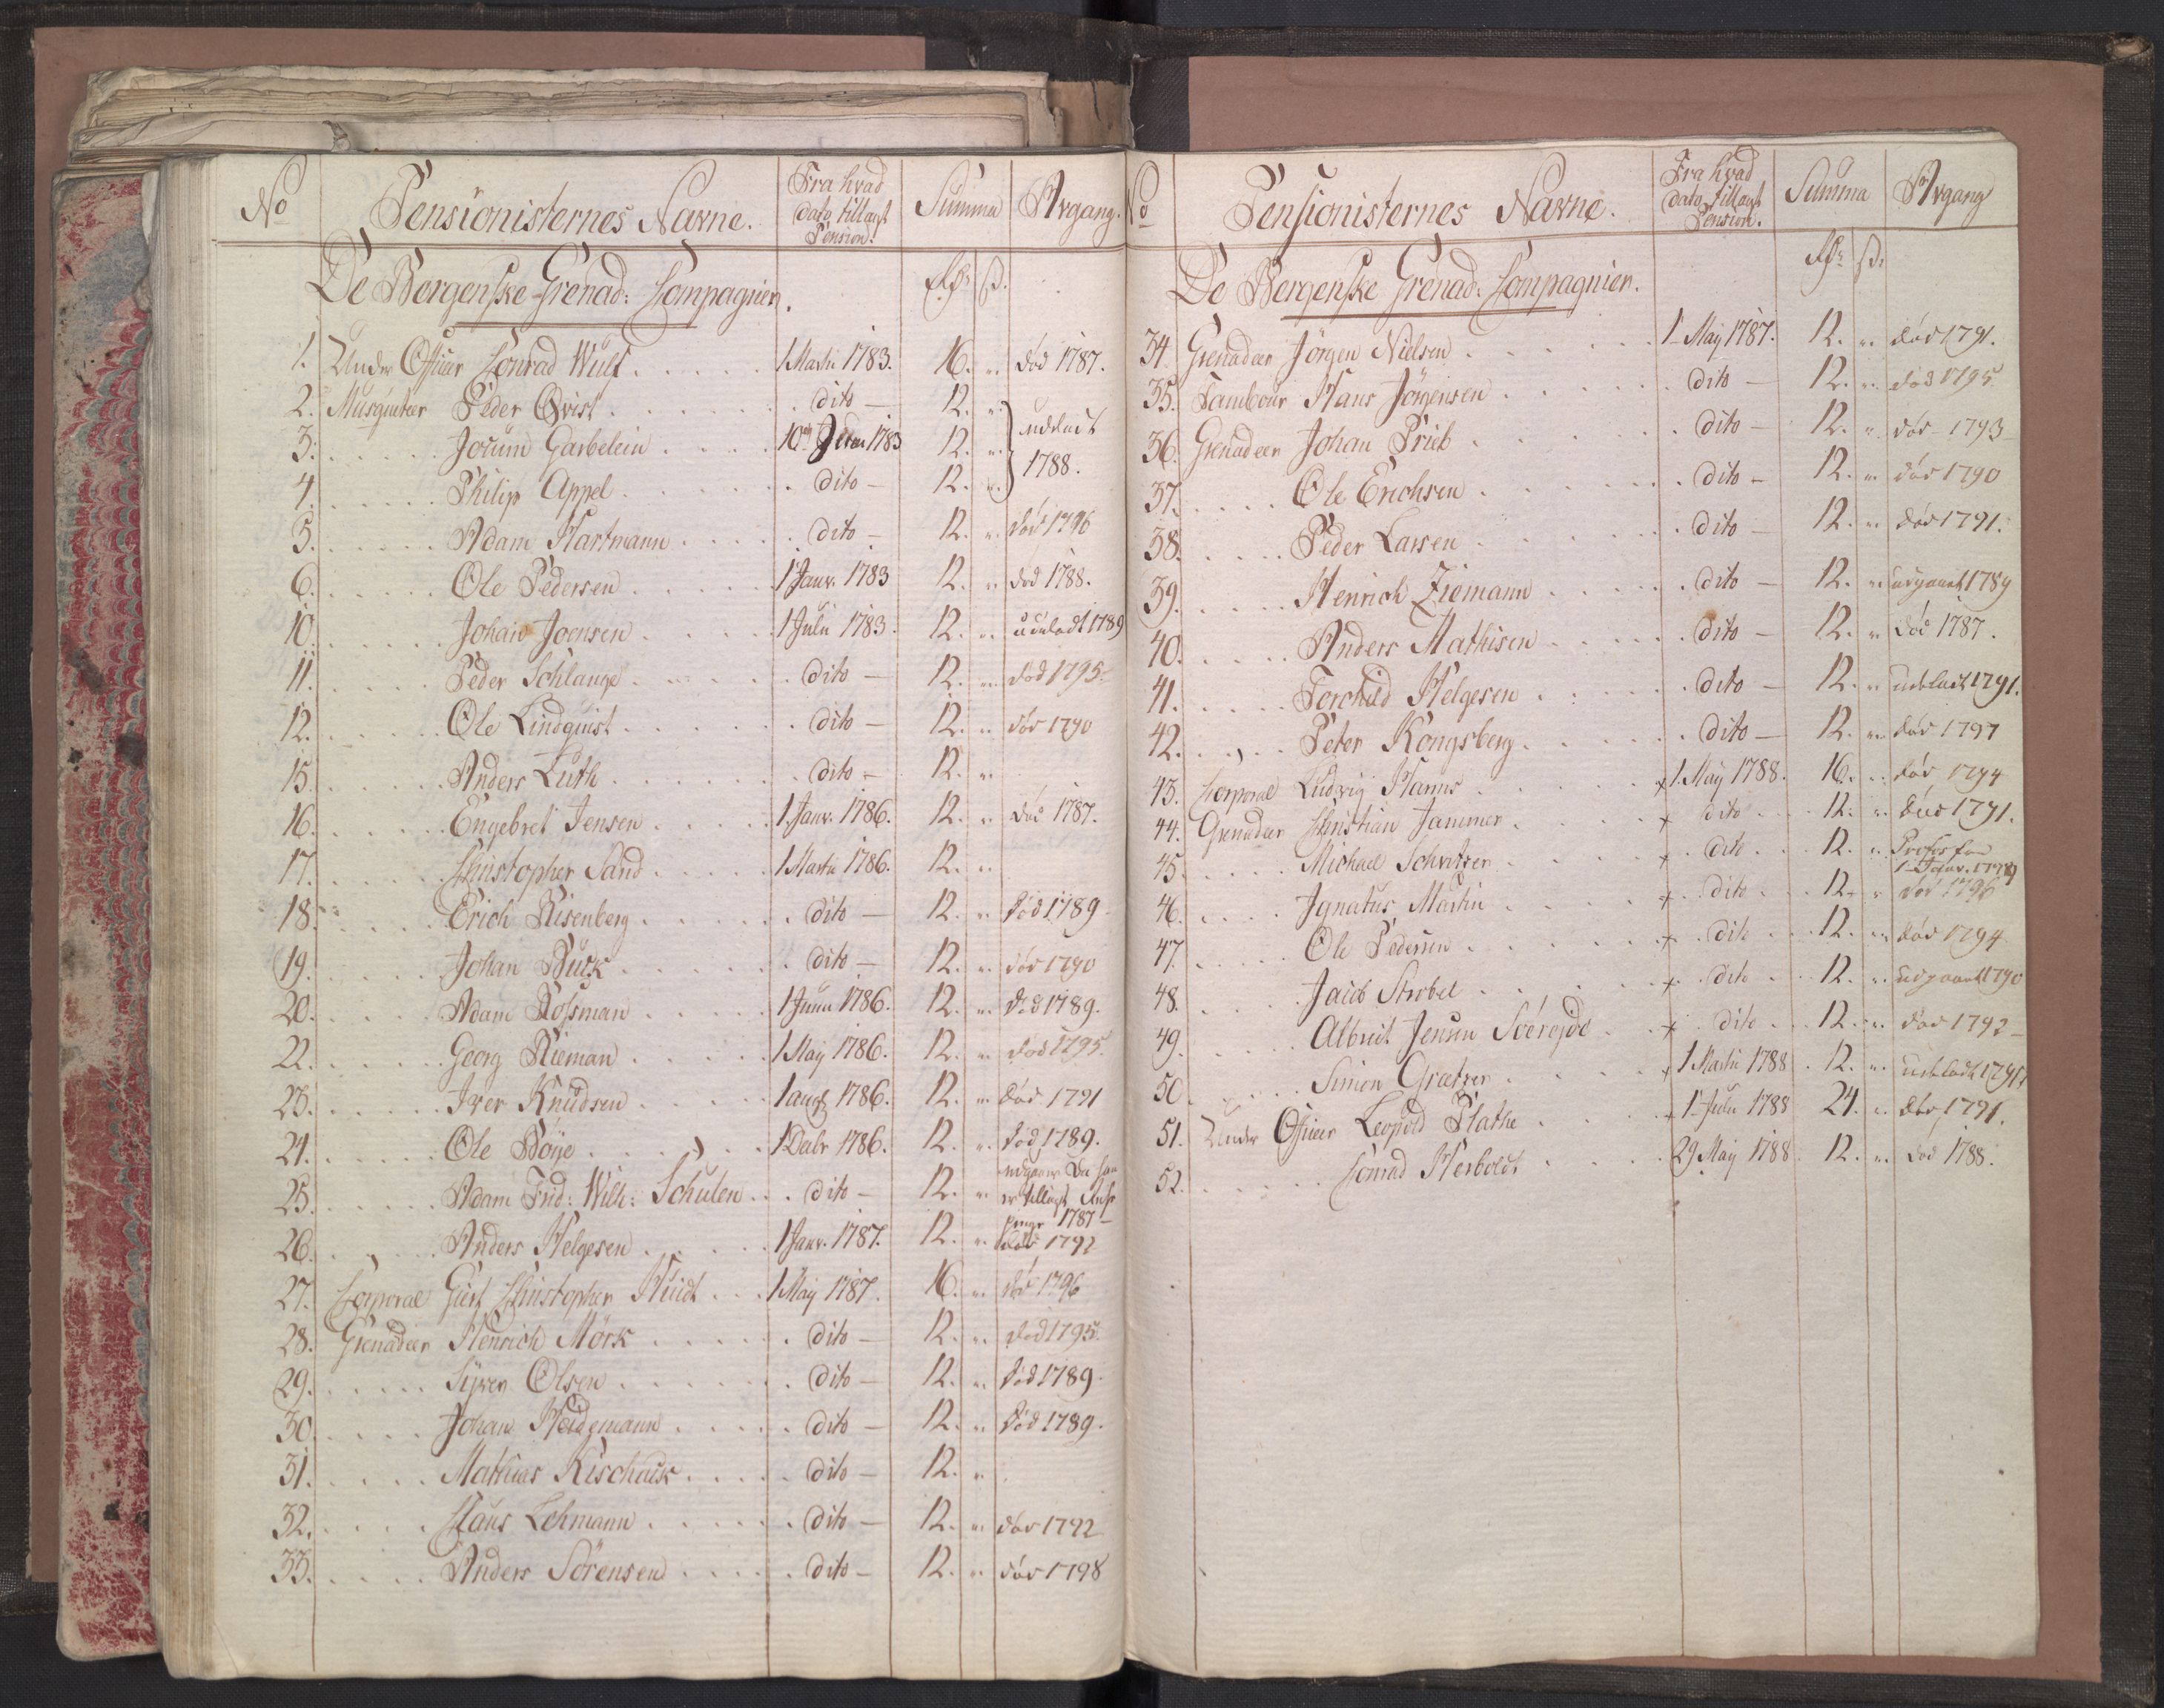 No Pensionisternes Navne. Fra hvad dato tillagt Pension. Summa Afgang.
De Bergenske Grenad: Compagnier. Rdr ß.
1. Under Officer Conrad Wulf 1 Martii 1783. 16. " død 1787.
2. Musqueteer Peder Qvist dito — 12. " udladt 1788.
3. Jocum Garbelein 10de 1783 12. "
4. Philip Appel dito — 12. "
5. Adam Hartmann dito — 12. " død 1796
6. Ole Pedersen 1 Janr. 1783 12. " død 1788.
10. Johan Joensen 1 Julii 1783. 12. " udeladt 1789
11. Peder Schlange dito — 12. " død 1795
12. Ole Lindquist dito — 12. " død 1790
15. Anders Luth dito — 12. "
16. Engebret Jensen 1 Janr. 1786. 12. " død 1787.
17. Christopher Sand 1 Martii 1786. 12. "
18. Erich Risenberg dito — 12. " død 1789.
19. Johan Buck dito — 12. " død 1790
20. Adam Rossman 1 Junii 1786. 12. " død 1789.
22. Georg Rieman 1 May 1786. 12. " død 1795.
23. Iver Knudsen 1 aug 1786. 12. " død 1791
24. Ole Böye 1 Dcbr 1786. 12. " død 1789.
25. Adam Frid: Wilh: Schulen dito — 12. " udgaaer da han er tillagt penge 1787 —
26. Anders Helgesen 1 Janr. 1787. 12. " død 1792
27. Corporal Giert Christopher Huidt 1 May 1787. 16. " død 1796
28. Grenadeer Henrich Mörk dito — 12. " død 1795.
29. Syver Olsen dito — 12. " død 1789.
30. Johan Heidemann dito — 12. " død 1789.
31. Mathias Kischack dito — 12. "
32. Claus Lehmann dito — 12. " død 1792
33. Anders Sörensen dito — 12. " død 1798
No Pensionisternes Navne. Fra hvad dato tillagt Pension. Summa Afgang
De Bergenske Grenad: Compagnier. Rdr ß.
34. Grenadeer Jörgen Nielsen 1 May 1787. 12. " død 1791.
35. Tambour Hans Jörgensen dito — 12. " død 1795
36. Grenadeer Johan Prieb dito — 12. " død 1793
37. Ole Erichsen dito — 12. " død 1790
38. Peder Larsen dito — 12. " død 1791.
39. Henrich Ziemann dito — 12. " udgaaet 1789
40. Anders Mathisen dito — 12. " død 1787.
41. Torchild Helgesen dito — 12. " udeladt 1791.
42. Peter Kongsberg dito — 12. " død 1797
43. Corporal Ludvig Harms x 1 May 1788. 16. " død 1794
44. Grenadeer Christian Jammer x dito 12. " død 1791.
45. Michael Schvitzer x dito 12. " 1 Janr.
46. Ignatus Martin x dito 12. " død 1796
47. Ole Pedersen x dito 12. " død 1794
48. Jacob Strobel x dito 12. " udgaaet 1790
49. Albrict Jensen x dito 12. " død 1792 —
50. Simon Grætzer x 1 Martii 1788 12. " udeladt 1791
51. Under Officer Leopold Plathe x 1 Julii 1788 24. " død 1791.
52. Conrad Herboldt 29 May 1788 12. " død 1788.